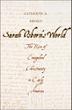 CATHERINE A.
BREKUS
Sarah Osborn's World
The Rise of
Evangelical
Christianity
in Early
America